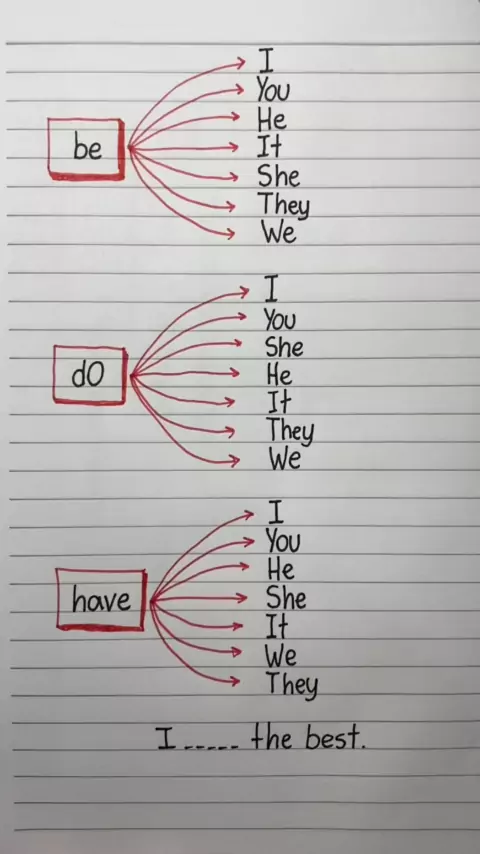 be
I
You
He
It
She
They
We
dO
I
You
She
He
It
They
We
have
I
You
He
She
It
We
They
I ----- the best.